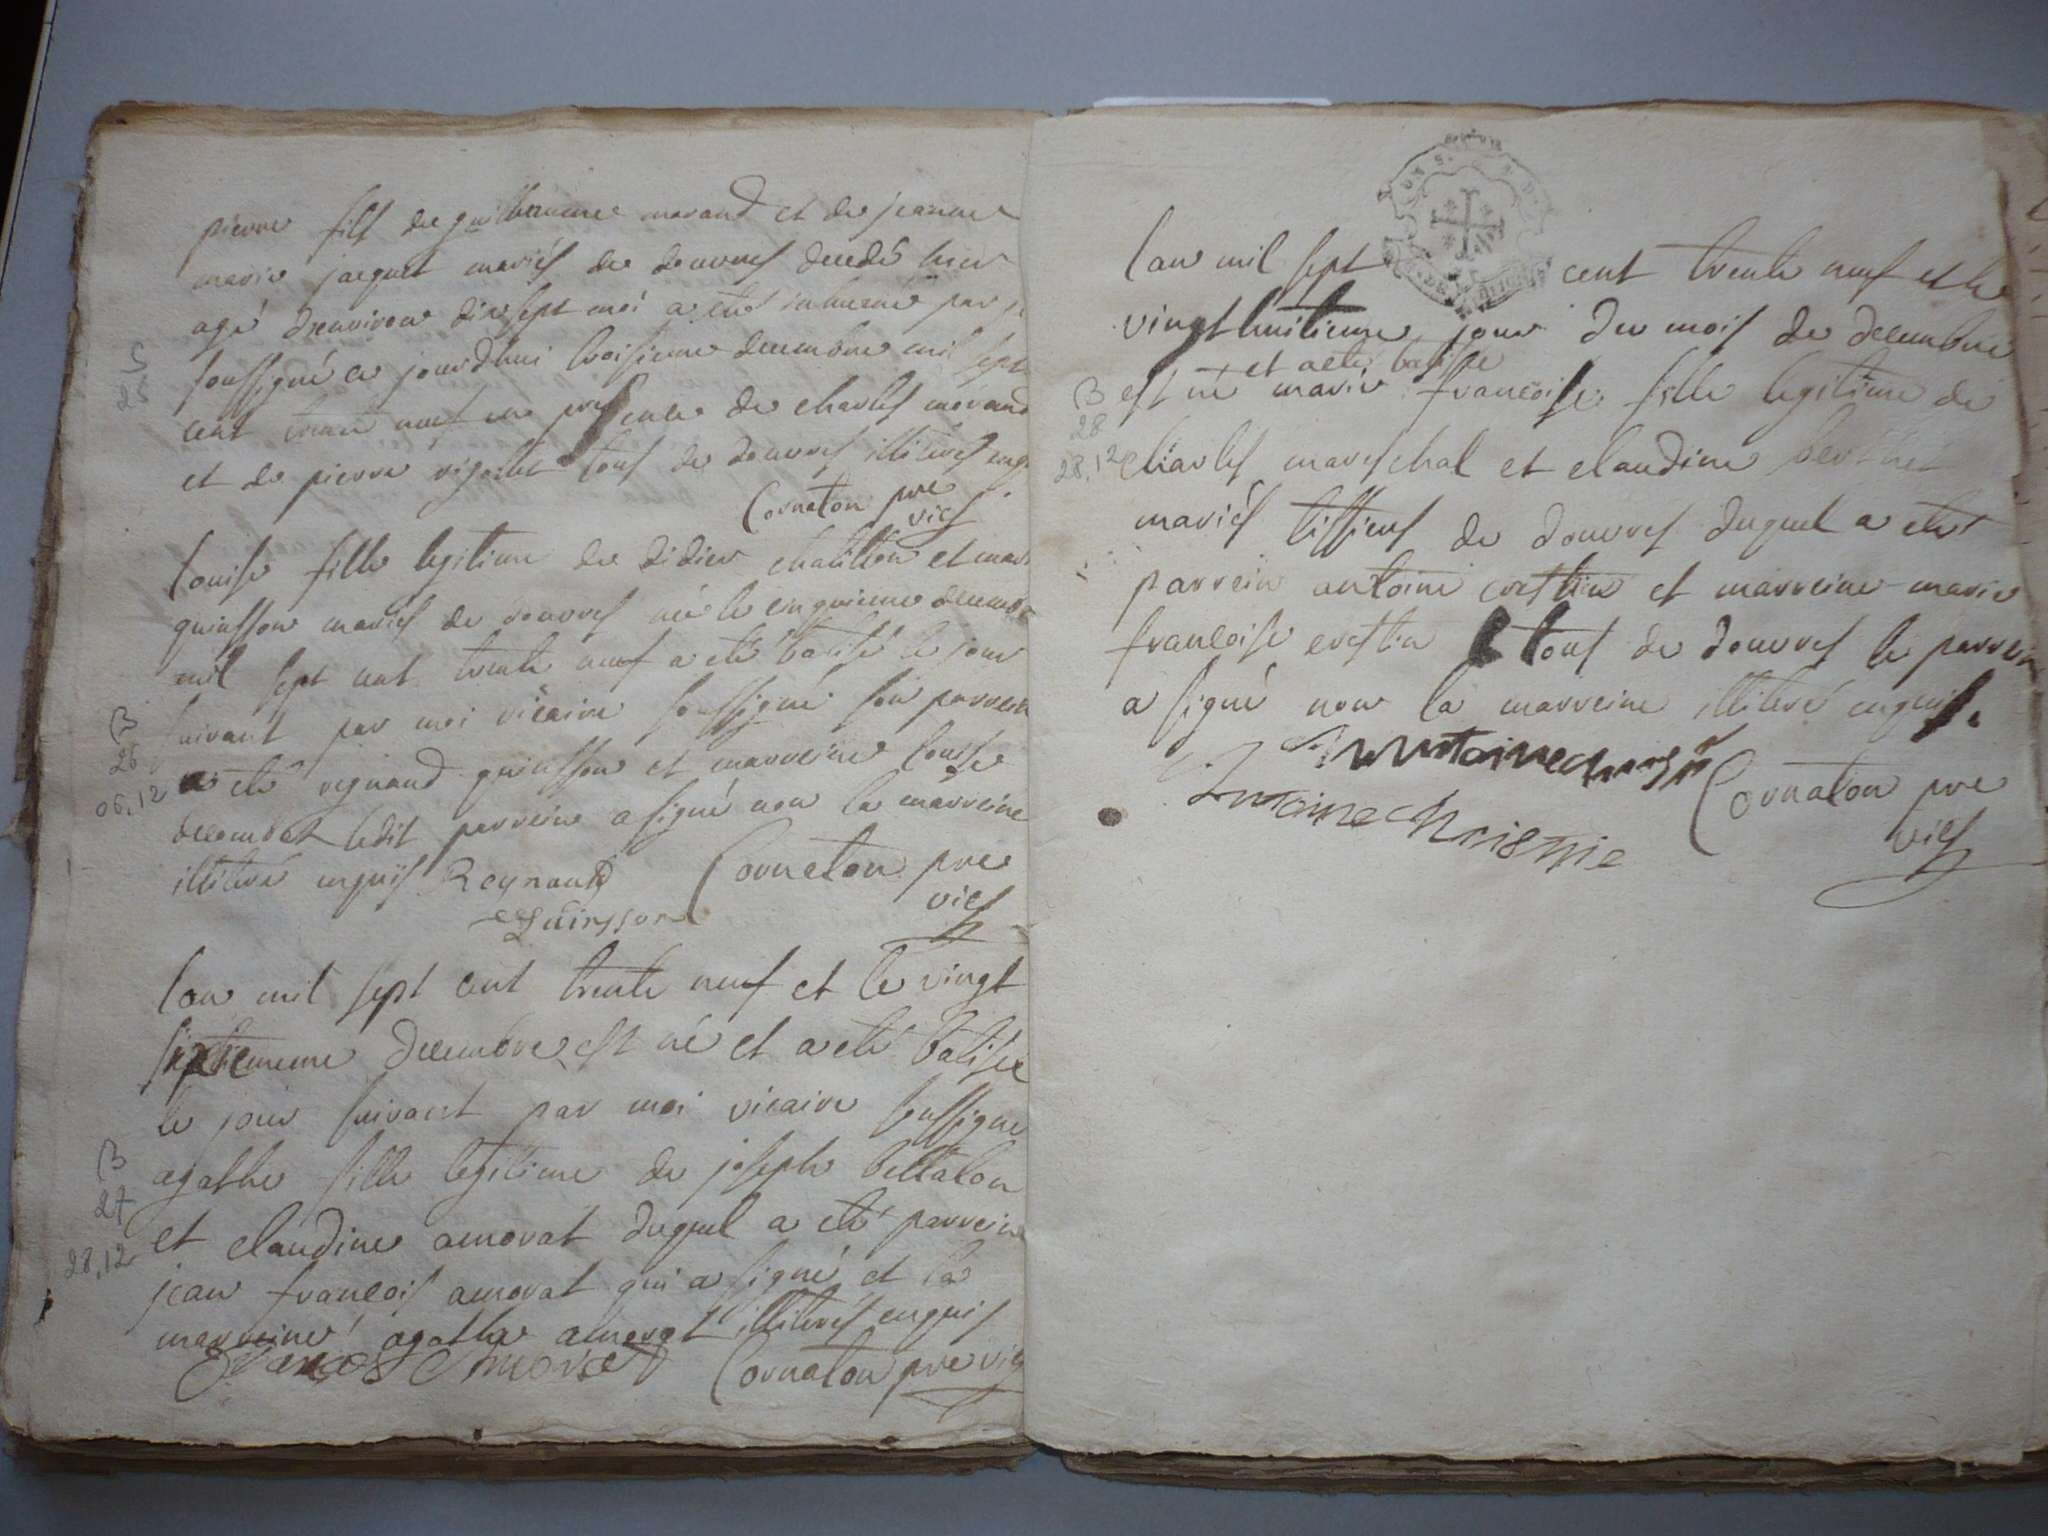 pierre fils de guillermine morand et de jeanne
marie jacquet mariés de douvres decedé hier
agé d'environ dix sept moi a eté inhumé par
soussigné ce jourd'hui troisieme decembre mil sept
S
25
cent trente neuf en presence de charles morand
et de pierre rigolet tous de douvres illiteres
Cornaton pre
vics
Louise fille legitime de didier chatillon et
quinsson mariés de douvres née le cinquieme decembre
mil sept cent trente neuf a eté batisé le jour
B
26
06,12
suivant par moi vicaire soussigné son parrein
a eté reynaud quinsson et marreine louise
decombet ledit parrein a signé non la marreine
illiteré enquis Reynaud Cornaton pre
Quinsson vics
Lan mil sept cent trente neuf et le vingt
decembre est né et a eté batisee
le jour suivant par moi vicaire soussigné
B
27
28,12
agathe fille legitime de joseph billalon
et claudine amorat duquel a eté parrein
jean francois amorat qui a signé et la
marreine agathe amorat illiteres enquis
Francois Amorat Cornaton pre vics
Lan mil sept cent trente neuf et le
vingt huitieme jour du mois de decembre
et a eté batisee
B
28
28,12
est né marie francoise fille legitime de
charles mareschal et claudine berthet
mariés tissiers de douvres duquel a eté
parrein antoine crestin et marreine marie
francoise crestin tous de douvres le parrein
a signé non la marreine illiteré enquise
Antoine
Antoine Cornaton pre
vics